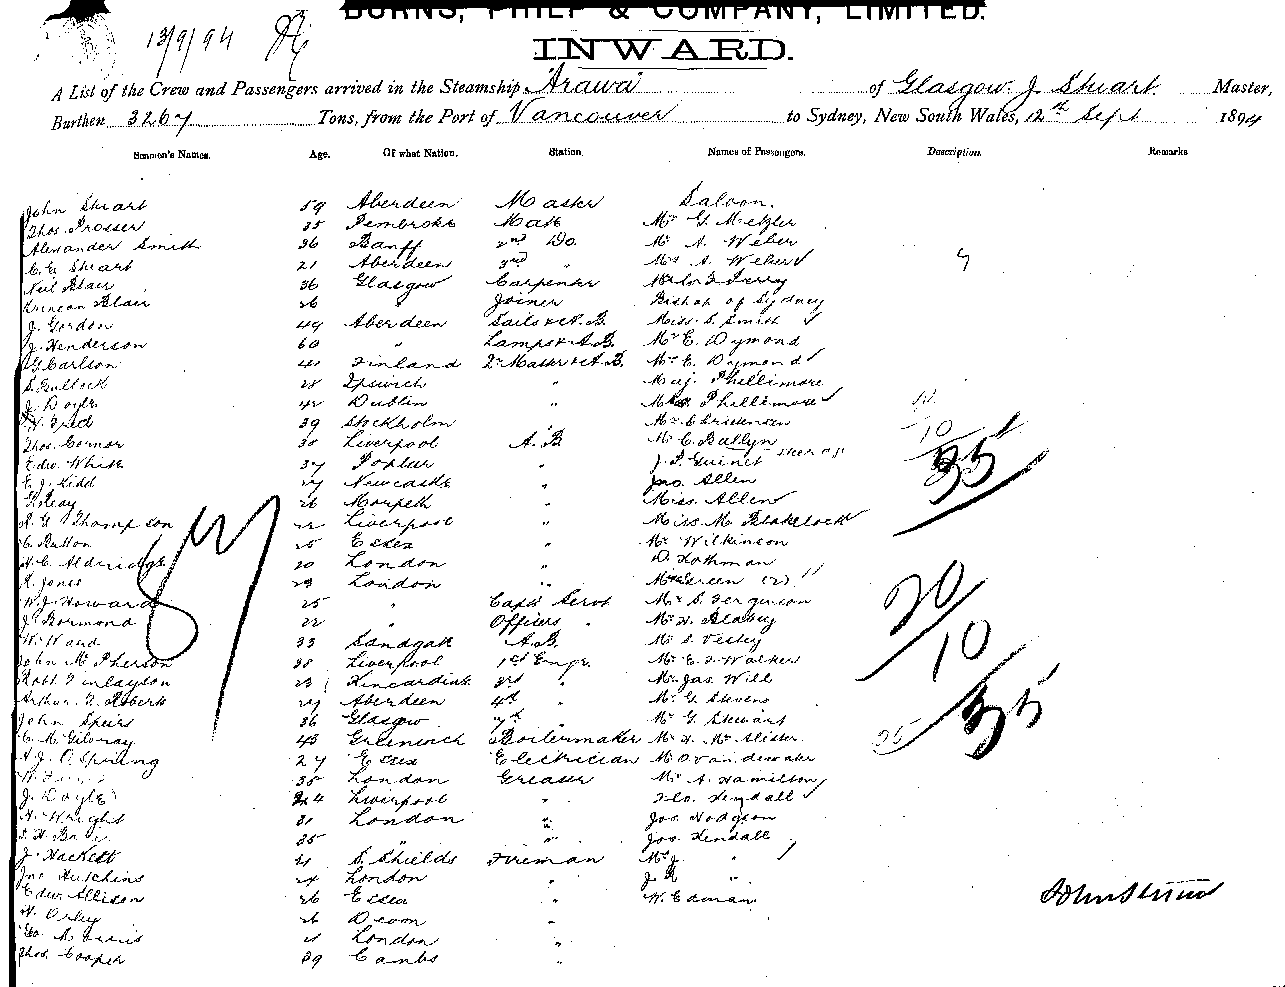 BURNS, PHILP & COMPANY, LIMITED.
13/9/94
INWARD.
A List of the Crew and Passengers arrived in the Steamship "Arawa" of Glasgow. J Stuart Master,
Burthen 3267 Tons, from the Port of Vancouver to Sydney, New South Wales, 12th Sept 1894
Seamen's Names. Age. Of what Nation. Station. Names of Passengers. Description. Remarks
John Stuart 59 Aberdeen Master Saloon.
Thos. Prosser 35 Pembroke Mate Mr G. Metzler
Alexander Smith 36 Banff 2nd Do. Mr A. Weber
C. E. Stuart 21 Aberdeen 3rd " Mrs A. Weber
Neil Blair 36 Glasgow Carpenter
Duncan Blair 26 " Joiner Bishop of Sydney
J. Gordon 49 Aberdeen Sails & A.B. Miss. S. Smith
J. Henderson 60 " Lamps & A.B. Mr E. Dymond
G. Carlson 41 Finland Qr Master & A.B. Mrs E. Dymond
S. Bullock 28 Ipswich " Maj. Phillimore
J. Doyle 42 Dublin " Mrs. Phillimore
39 Stockholm " Mr. C. Erickson
Thos. Connor 30 Liverpool A.B. Mr C. Ballyn
Edw. White 37 Poplar " J. P. Guinet
F. J. Kidd 27 Newcastle " Jno. Allen
26 Morpeth " Miss. Allen
R. G. Thompson 22 Liverpool " Miss. M. Blakelock
C. Button 25 Essex " Mr Wilkinson
H. C. Aldridge 20 London " D. Hothman
R. Jones 23 London " Mrs Green (2)
W. J. Howard 25 " Capts Servt Mr S. Ferguson
J. Normond 22 " Officers " Mr H. Blabey
W. Ward 33 Sandgate A.B. Mr S. Vesley
John McPherson 38 Liverpool 1st Engr. Mr E. J. Walker
Robt. Finlayson 23 Kincardine 3rd " Mr Jas. Will
Arthur. F. Roberts 27 Aberdeen 4th " Mr G. Stevens
John Speirs 36 Glasgow " Mr G. Stewart
C. McGilvray 43 Greenock Boilermaker Mr H. McAlister
A. J. O. Spring 27 Essex Electrician Mr O. Vandewater
W. 35 London Greaser Mr A. Hamilton
J. Doyle 24 Liverpool " Flo. Kendall
H. Wright 31 London " Jos. Hodgson
35 " " Jos. Kendall
J. Hackett 21 S. Shields Fireman Mrs J. "
Jno Hutchins 24 London " J. R. "
Edw. Allison 26 Essex " W. Edman
H. Orley 26 "
Geo. 21 London "
Thos. Cooper 39 Cambs "
57
10
35
20
10
35